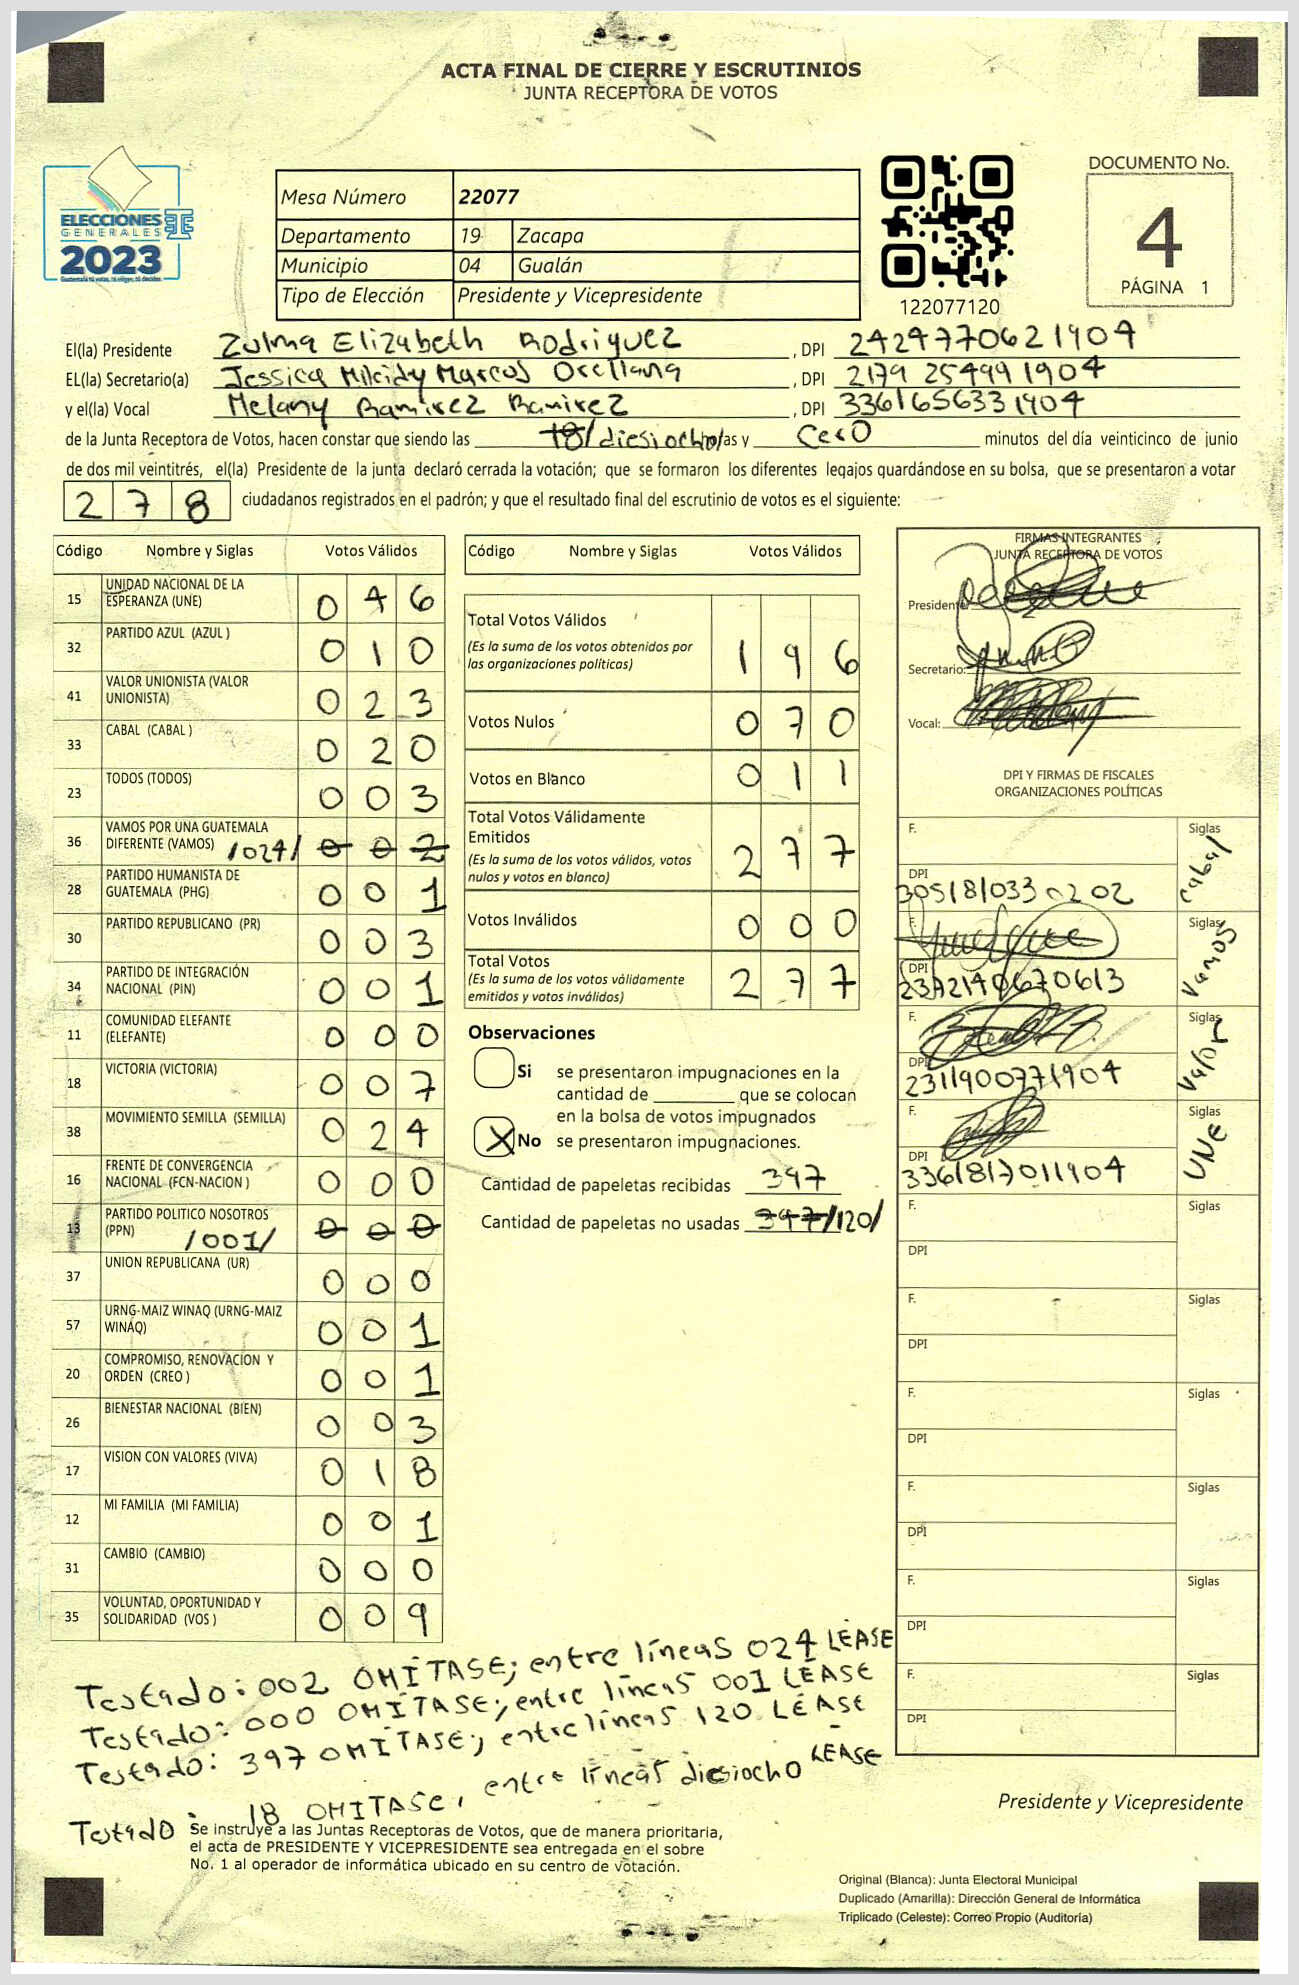 ACTA FINAL DE CIERRE Y ESCRUTINIOS
JUNTA RECEPTORA DE VOTOS
ELECCIONES
GENERALES
2023
Mesa Número 22077
Departamento 19 Zacapa
Municipio 04 Gualán
Tipo de Elección Presidente y Vicepresidente
122077120
DOCUMENTO No.
4
PÁGINA 1
El(la) Presidente Zulma Elizabeth Rodriguez, DPI 2424770621904
EL(la) Secretario(a) Jessica Marcos Orellana, DPI 2179 25499 1904
y el(la) Vocal Melany Ramirez Ramirez, DPI 3361656331904
de la Junta Receptora de Votos, hacen constar que siendo las 18/diesiocho/ horas y cero minutos del día veinticinco de junio
de dos mil veintitrés, el(la) Presidente de la junta declaró cerrada la votación; que se formaron los diferentes legajos quardándose en su bolsa, que se presentaron a votar
278 ciudadanos registrados en el padrón; y que el resultado final del escrutinio de votos es el siguiente:
Código Nombre y Siglas Votos Válidos
15 UNIDAD NACIONAL DE LA ESPERANZA (UNE) 046
32 PARTIDO AZUL (AZUL ) 010
41 VALOR UNIONISTA (VALOR UNIONISTA) 023
33 CABAL (CABAL ) 020
23 TODOS (TODOS) 003
36 VAMOS POR UNA GUATEMALA DIFERENTE (VAMOS) /024/ 002
28 PARTIDO HUMANISTA DE GUATEMALA (PHG) 001
30 PARTIDO REPUBLICANO (PR) 003
34 PARTIDO DE INTEGRACIÓN NACIONAL (PIN) 001
11 COMUNIDAD ELEFANTE (ELEFANTE) 000
18 VICTORIA (VICTORIA) 007
38 MOVIMIENTO SEMILLA (SEMILLA) 024
16 FRENTE DE CONVERGENCIA NACIONAL (FCN-NACION ) 000
13 PARTIDO POLITICO NOSOTROS (PPN) /001/ 000
37 UNION REPUBLICANA (UR) 000
57 URNG-MAIZ WINAQ (URNG-MAIZ WINAQ) 001
20 COMPROMISO, RENOVACION Y ORDEN (CREO ) 001
26 BIENESTAR NACIONAL (BIEN) 003
17 VISION CON VALORES (VIVA) 018
12 MI FAMILIA (MI FAMILIA) 001
31 CAMBIO (CAMBIO) 000
35 VOLUNTAD, OPORTUNIDAD Y SOLIDARIDAD (VOS ) 009
Código Nombre y Siglas Votos Válidos
Total Votos Válidos 196
(Es la suma de los votos obtenidos por
las organizaciones políticas)
Votos Nulos 070
Votos en Blanco 011
Total Votos Válidamente
Emitidos 277
(Es la suma de los votos válidos, votos
nulos y votos en blanco)
Votos Inválidos 000
Total Votos 277
(Es la suma de los votos válidamente
emitidos y votos inválidos)
Observaciones
Si se presentaron impugnaciones en la
cantidad de ________ que se colocan
en la bolsa de votos impugnados
X No se presentaron impugnaciones.
Cantidad de papeletas recibidas 397
Cantidad de papeletas no usadas 397/120/
FIRMAS INTEGRANTES
JUNTA RECEPTORA DE VOTOS
Presidente:
Secretario:
Vocal:
DPI Y FIRMAS DE FISCALES
ORGANIZACIONES POLÍTICAS
F. Siglas Cabal
DPI 305181033 0202
F. Siglas Vamos
DPI 2372140670613
F. Siglas Valor
DPI 2311900771904
F. Siglas UNE
DPI 3361817011904
F. Siglas
DPI
F. Siglas
DPI
F. Siglas
DPI
F. Siglas
DPI
F. Siglas
DPI
F. Siglas
DPI
Testado: 002 OMÍTASE; entre líneas 024 LEASE
Testado: 000 OMÍTASE; entre líneas 001 LEASE
Testado: 397 OMÍTASE; entre líneas 120 LEASE
Testado: 18 OMITASE, entre líneas diesiocho LEASE
Se instruye a las Juntas Receptoras de Votos, que de manera prioritaria,
el acta de PRESIDENTE Y VICEPRESIDENTE sea entregada en el sobre
No. 1 al operador de informática ubicado en su centro de votación.
Presidente y Vicepresidente
Original (Blanca): Junta Electoral Municipal
Duplicado (Amarilla): Dirección General de Informática
Triplicado (Celeste): Correo Propio (Auditoría)